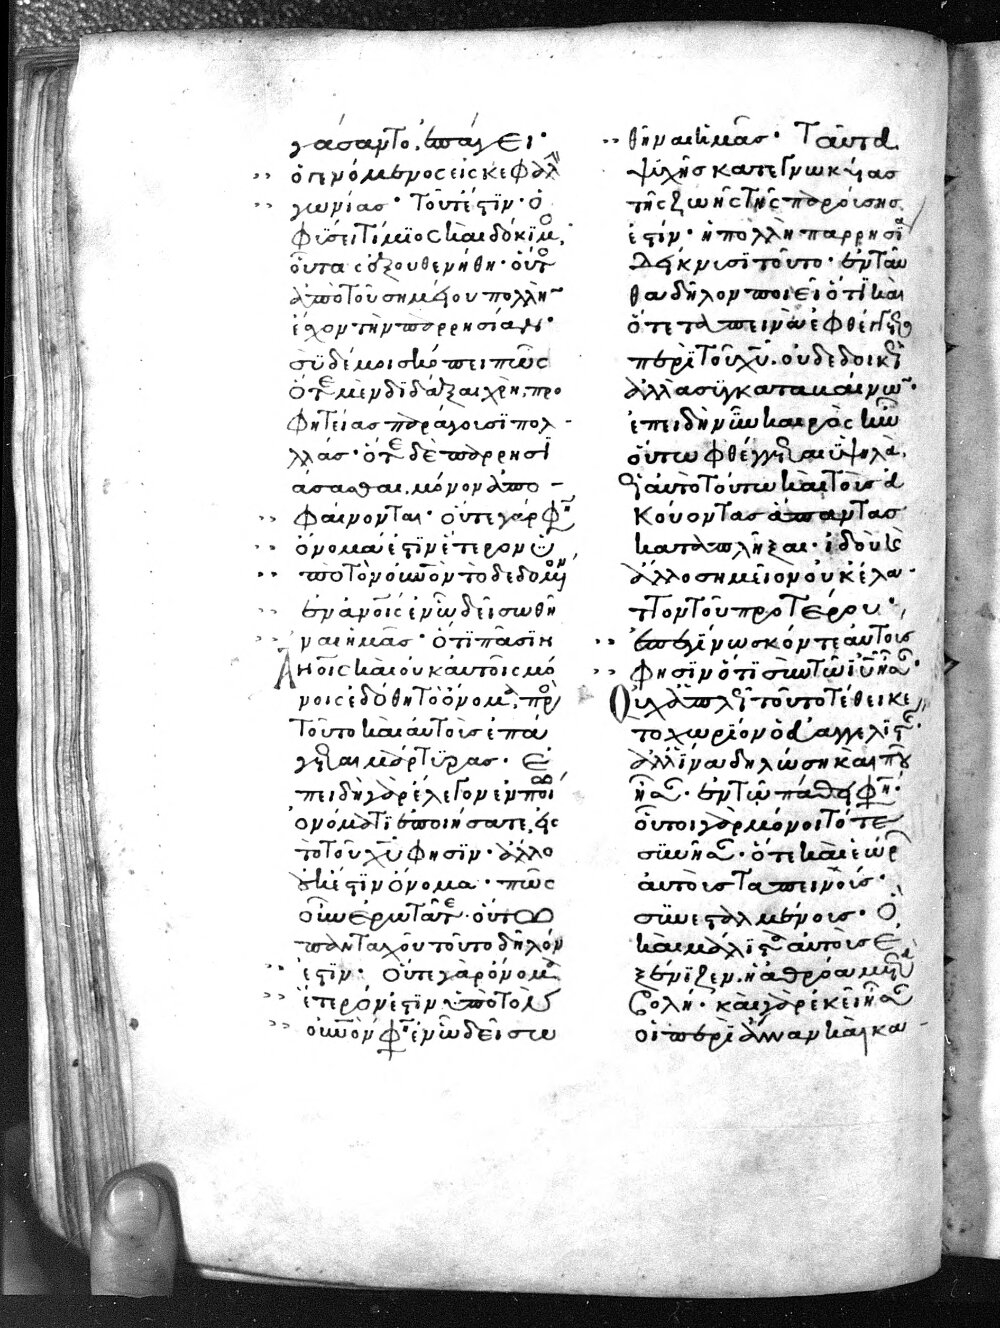 γάσαντο, ἐπάγει·
ὁ γενόμενος εἰς κεφαλὴν
γωνίας· Τουτέστιν· ὁ
φύσει τίμιος καὶ δόκιμος,
οὗτος ἐξουθενήθη· οὕτω
ἀπὸ τοῦ σημείου πολλὴν
ἔχον τὴν παρρησίαν·
σὺ δέ μοι σκόπει πῶς
ὅτε μὲν διδάξαι χρὴ, προ
φητείας παράγουσι πολ
λάς· ὅτε δὲ παρρησι
άσασθαι, μόνον ἀπο
φαίνονται· οὔτε γὰρ φησὶν
ὄνομα ἐστὶν ἕτερον ὑ
πὸ τὸν οὐρανὸν τὸ δεδομένον
ἐν ἀνθρώποις ἐν ᾧ δεῖ σωθῆ
ναι ἡμᾶς· ὅτι πᾶσιν
ἀνθρώποις καὶ οὐκ αὐτοῖς μό
νοις ἐδόθη τὸ ὄνομα, πρὸς
τοῦτο καὶ αὐτοὺς ἐπά
γεται μάρτυρας· ἐ
πειδὴ γὰρ ἔλεγον ἐν ποίῳ
ὀνόματι ἐποιήσατε, εἰς
τὸ τοῦ χυ φησὶν· ἄλλο
οὐκ ἔστιν ὄνομα· πῶς
οὖν ἐρωτᾶτε· οὕτω
πανταχοῦ τοῦτο δῆλόν
ἐστιν· Οὔτε γὰρ ὄνομα
ἕτερόν ἐστιν ὑπὸ τὸν
οὐρανὸν φησὶν ἐν ᾧ δεῖ σω
θῆναι ἡμᾶς· Ταῦτα
ψυχῆς κατεγνωκυίας
τῆς ζωῆς τῆς παρούσης
ἐστὶν· ἡ πολλὴ παρρησία
δείκνυσι τοῦτο· ἐνταῦ
θα δῆλον ποιεῖ ὅτι καὶ
ὅτε ταπεινὰ ἐφθέγγετο
περὶ τοῦ χυ. οὐ δεδοικὼς
ἀλλὰ συγκαταβαίνων·
ἐπειδὴ νῦν καιρὸς ἦν
οὕτω φθέγγεται ὑψηλὰ,
ὡς αὐτὸ τούτῳ καὶ τοὺς ἀ
κούοντας ἅπαντας
καταπλῆξαι· ἰδοὺ καὶ
ἄλλο σημεῖον οὐκ ἔλατ
τον τοῦ προτέρου·
ἐπεγίνωσκόν τε αὐτοὺς
φησὶν ὅτι σὺν τῷ ιυ ἦσαν·
Οὐχ ἁπλῶς τοῦτο τέθεικε
τὸ χωρίον ὁ εὐαγγελιστὴς.
ἀλλ' ἵνα δηλώσῃ καὶ ποῦ
ἦσαν· ἐν τῷ πάθει φησὶν·
οὗτοι γὰρ μόνοι τότε
συνῆσαν· ὅτε καὶ ἑώρων
αὐτοὺς ταπεινοὺς·
συνεσταλμένους· Ὃ
καὶ μάλιστα αὐτοὺς ἐ
ξένιζεν, ἡ ἀθρόα μετα
βολή· καὶ γὰρ ἐκεῖ ἦσαν
οἱ περὶ ἄνναν καὶ κα